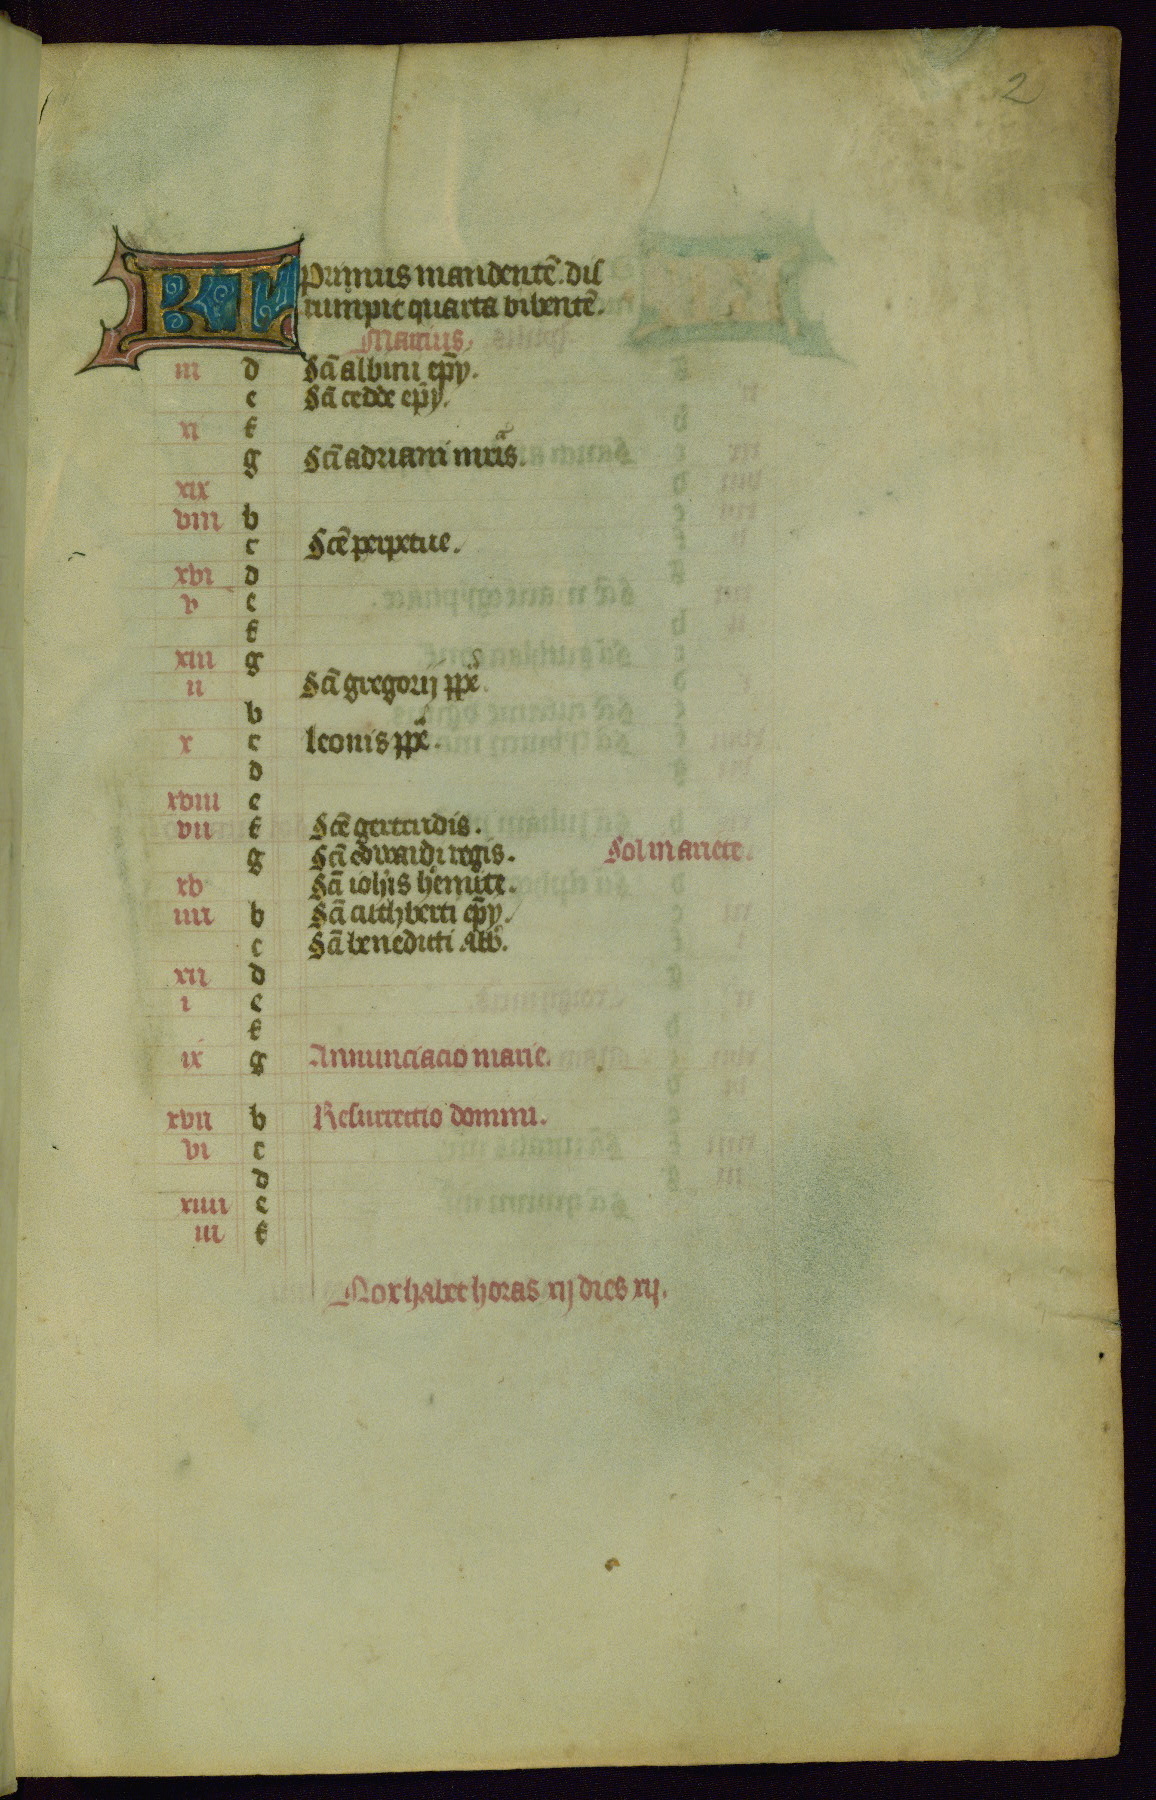 2
KL Primus mandentē. dis
rumpit quarta bibentē.
Marcius
iii d Scī albini ep̄y.
e Scī cedde ep̄y.
xi f
g Scī adriani mr̄is.
xix
viii b
c Scē perpetue.
xvi d
v e
f
xiii g
ii Scī gregorij pp̄e.
b
x c leonis pp̄e.
d
xviii e
vii f Scē gertrudis.
g Scī edwardi regis. Sol in ariete.
xv Scī ioh̄is h̄emite.
iiii b Scī cuthberti ep̄y.
c Scī benedicti Ab̄b.
xii d
i e
f
ix g Annunciacio marie.
xvii b Resurrectio domini.
vi c
d
xiiii e
iii f
Nox habet horas xij dies xij.